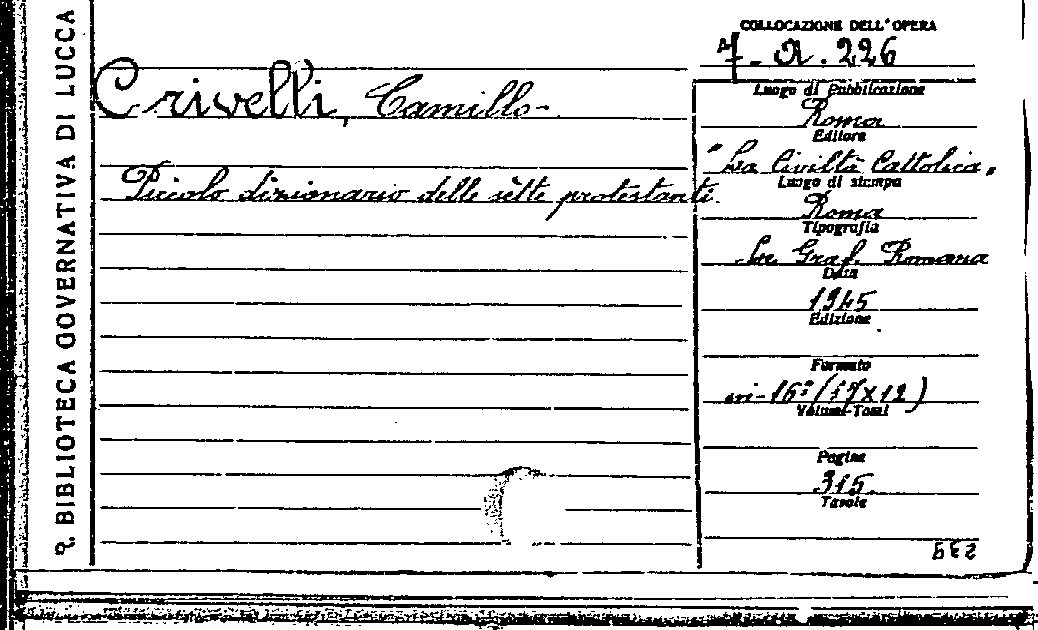 R. BIBLIOTECA GOVERNATIVA DI LUCCA
COLLOCAZIONE DELL'OPERA
A7 - a. 226
Crivelli, Camillo -
Piccolo dizionario delle sètte protestanti.
Luogo di Pubblicazione
Roma
Editore
"La Civiltà Cattolica„
Luogo di stampa
Roma
Tipografia
La Graf. Romana
Data
1945
Edizione
Formato
in-16° (17x12)
Volumi-Tomi
Pagine
315
Tavole